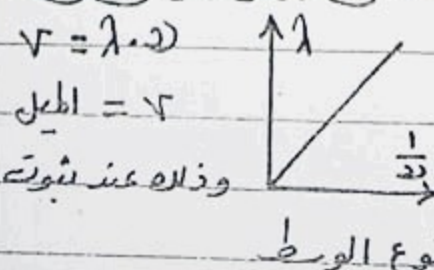 v = λ.ν
λ
v = الميل
1/ν
وذلك عند ثبوت
وع الوسط